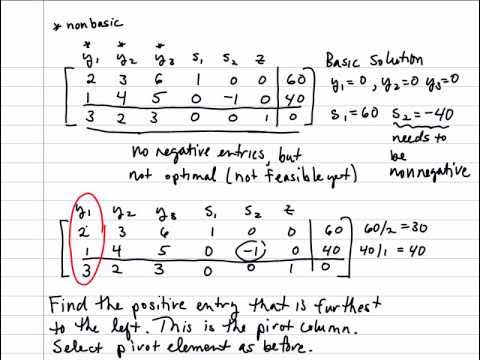 * nonbasic
* * *
y1 y2 y3 s1 s2 z
2 3 6 1 0 0 60
1 4 5 0 -1 0 40
3 2 3 0 0 1 0
Basic Solution
y1 = 0, y2 = 0 y3 = 0
s1 = 60 s2 = -40
needs to
be
nonnegative
no negative entries, but
not optimal (not feasible yet)
y1 y2 y3 s1 s2 z
2 3 6 1 0 0 60 60/2 = 30
1 4 5 0 -1 0 40 40/1 = 40
3 2 3 0 0 1 0
Find the positive entry that is furthest
to the left. This is the pivot column.
Select pivot element as before.